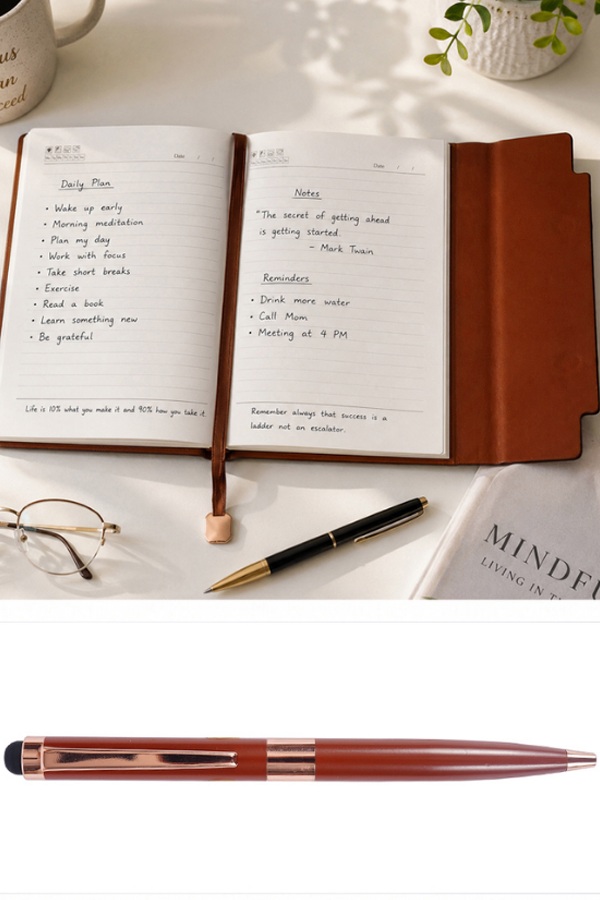 us
an
ceed
Date / /
Daily Plan
• Wake up early
• Morning meditation
• Plan my day
• Work with focus
• Take short breaks
• Exercise
• Read a book
• Learn something new
• Be grateful
Life is 10% what you make it and 90% how you take it
Date / /
Notes
"The secret of getting ahead
is getting started.
- Mark Twain
Reminders
• Drink more water
• Call Mom
• Meeting at 4 PM
Remember always that success is a
ladder not an escalator.
MINDFU
LIVING IN T